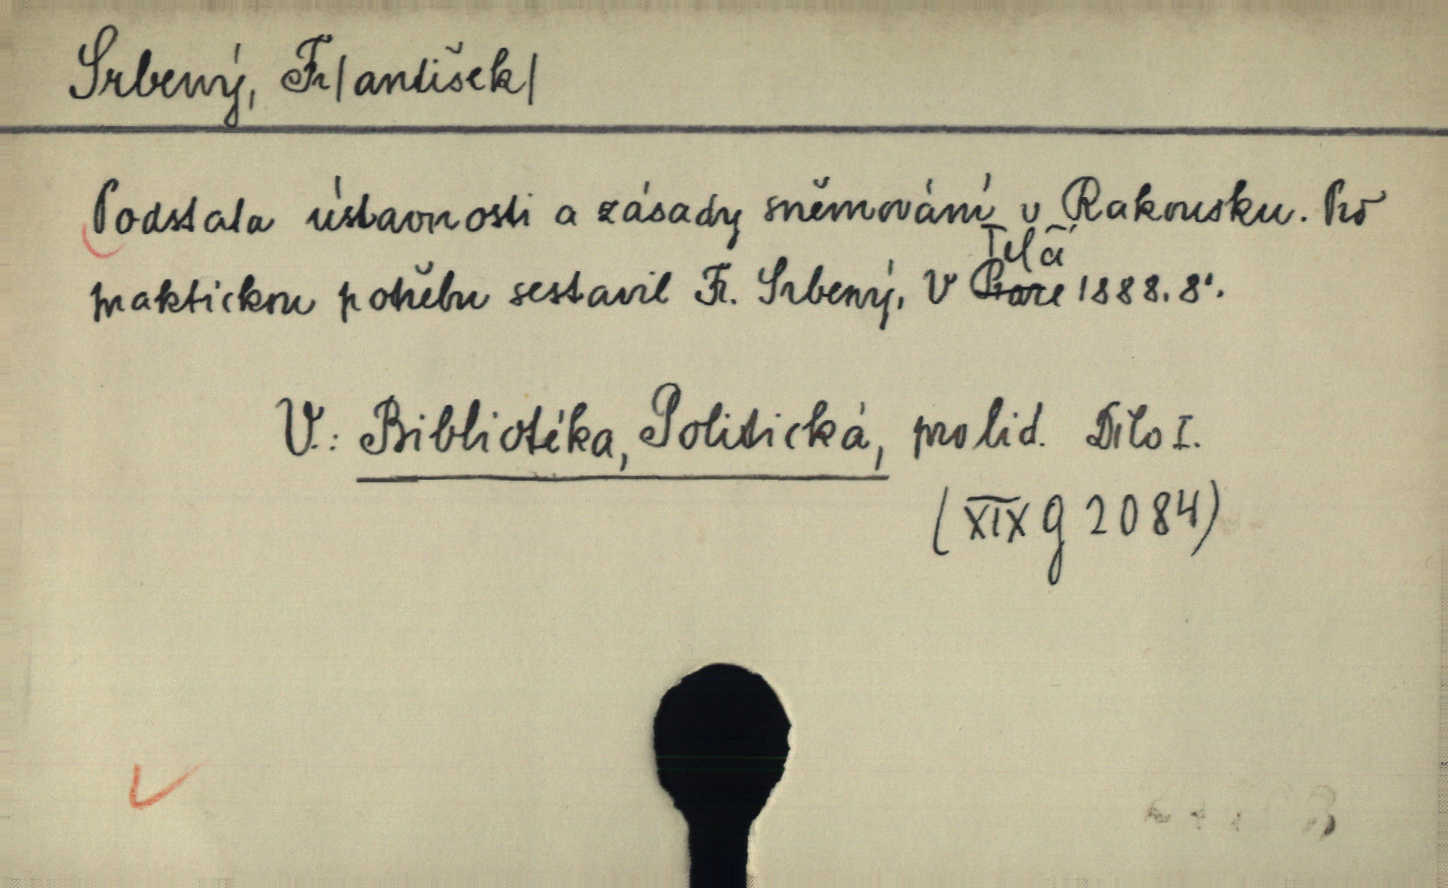 Srbený, Fr/antišek/
Podstata ústavnosti a zásady sněmování v Rakousku. Pro
Telči
praktickou potřebu sestavil Fr. Srbený, V Praze 1888. 8°.
V.: Bibliotéka, Politická, pro lid. Dílo I.
(XIX g 2084)